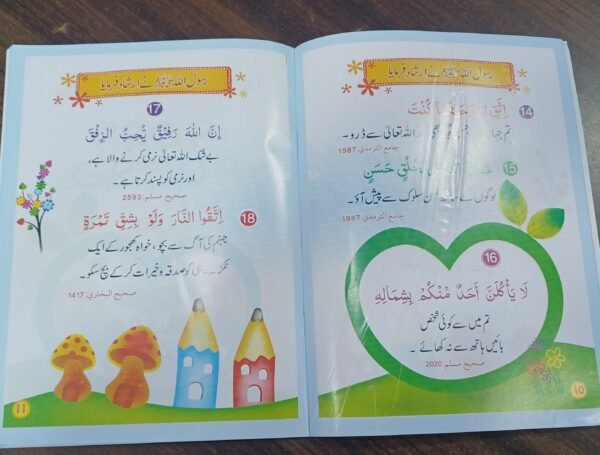 رسول اللہ ﷺ نے ارشاد فرمایا
14
اِتَّقِ اللهَ حَيْثُمَا كُنْتَ
تم جہاں سے اللہ تعالیٰ سے ڈرو۔
جامع الترمذی: 1987
15
حَسَنٍ
لوگوں کے حسن سلوک سے پیش آؤ۔
جامع الترمذی: 1987
16
لَا يَأْكُلَنَّ أَحَدٌ مِّنْكُمْ بِشِمَالِهِ
تم میں سے کوئی شخص
بائیں ہاتھ سے نہ کھائے ۔
صحیح مسلم: 2020
10
رسول اللہ ﷺ نے ارشاد فرمایا
17
إِنَّ اللهَ رَفِيْقٌ يُّحِبُّ الرِّفْقَ
بے شک اللہ تعالیٰ نرمی کرنے والا ہے،
اور نرمی کو پسند کرتا ہے۔
صحیح مسلم: 2593
18
اِتَّقُوا النَّارَ وَلَوْ بِشِقِّ تَمْرَةٍ
جہنم کی آگ سے بچو، خواہ کھجور کے ایک
ٹکڑے ہی کو صدقہ و خیرات کر کے بچ سکو۔
صحیح البخاری: 1417
11